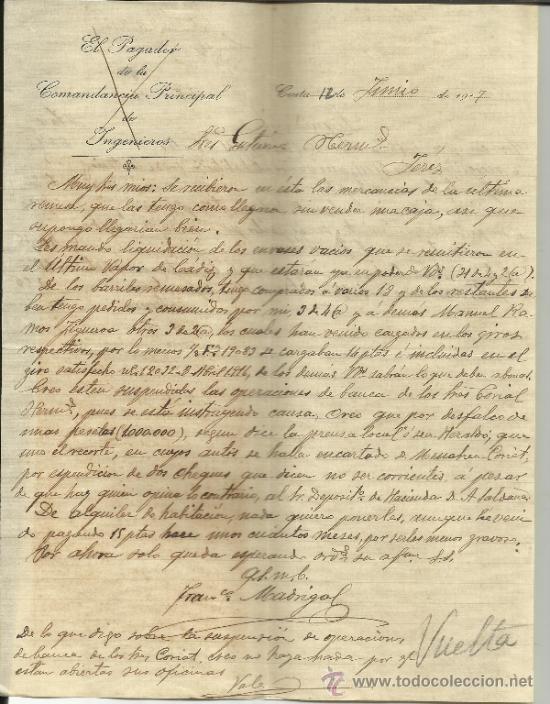 El Pagador
de la
Comandancia Principal
de
Ingenieros
Ceuta 12 de Junio de 1917
Sres Hermd
Jerez
Muy Sres mios: Se recibieron en ésta las mercancias de la última
remesa, que las tengo como llegaron sin vender una caja, asi que
supongo llegarian bien.
Les mando liquidición de los envases vacios que se remitieron en
el último vapor de Cadiz y que estaran ya en poder de Vds
De los barriles remesados, tengo comprados á varios 19 y de los restantes
tengo pedidos y consumidos por mi, 3 de 4@ y a demas Manuel Ra-
mos Figueroa otros 3 de 2@, los cuales han venido cargados en los giros
respectivos, por lo menos se cargaban ptas é incluidas en el
giro satisfecho de los demas Vds sabrán lo que deben abonar.
Creo estén suspendidas las operaciones de banca de los Sres Coriat
Hermd, pues se está instruyendo causa. Creo que por desfalco de
unas pesetas (1.000.000), segun dice la prensa local ó sea Heraldo, que
uno el recorte, en cuyos autos se halla encartado de Menahen Coriat,
por expendicion de dos cheques que dicen no ser corrientes á pesar
de que hay quien opina lo contrario, al Sr. Deposito de Hacienda D. A. Saldaña
De alquiler de habitación, nada quiero ponerles, aunque he veni
do pagando 15 ptas hace unos cuantos meses, por serles menos gravoso.
Por ahora solo queda esperando ords su afmo. S.S.
q.b.m.b.
Franco Madrigal
De lo que digo sobre la suspensión de operaciones
de banca de los Sres Coriat, creo no haya nada por q
estan abiertas sus oficinas
Vale
Vuelta
todocoleccion.net